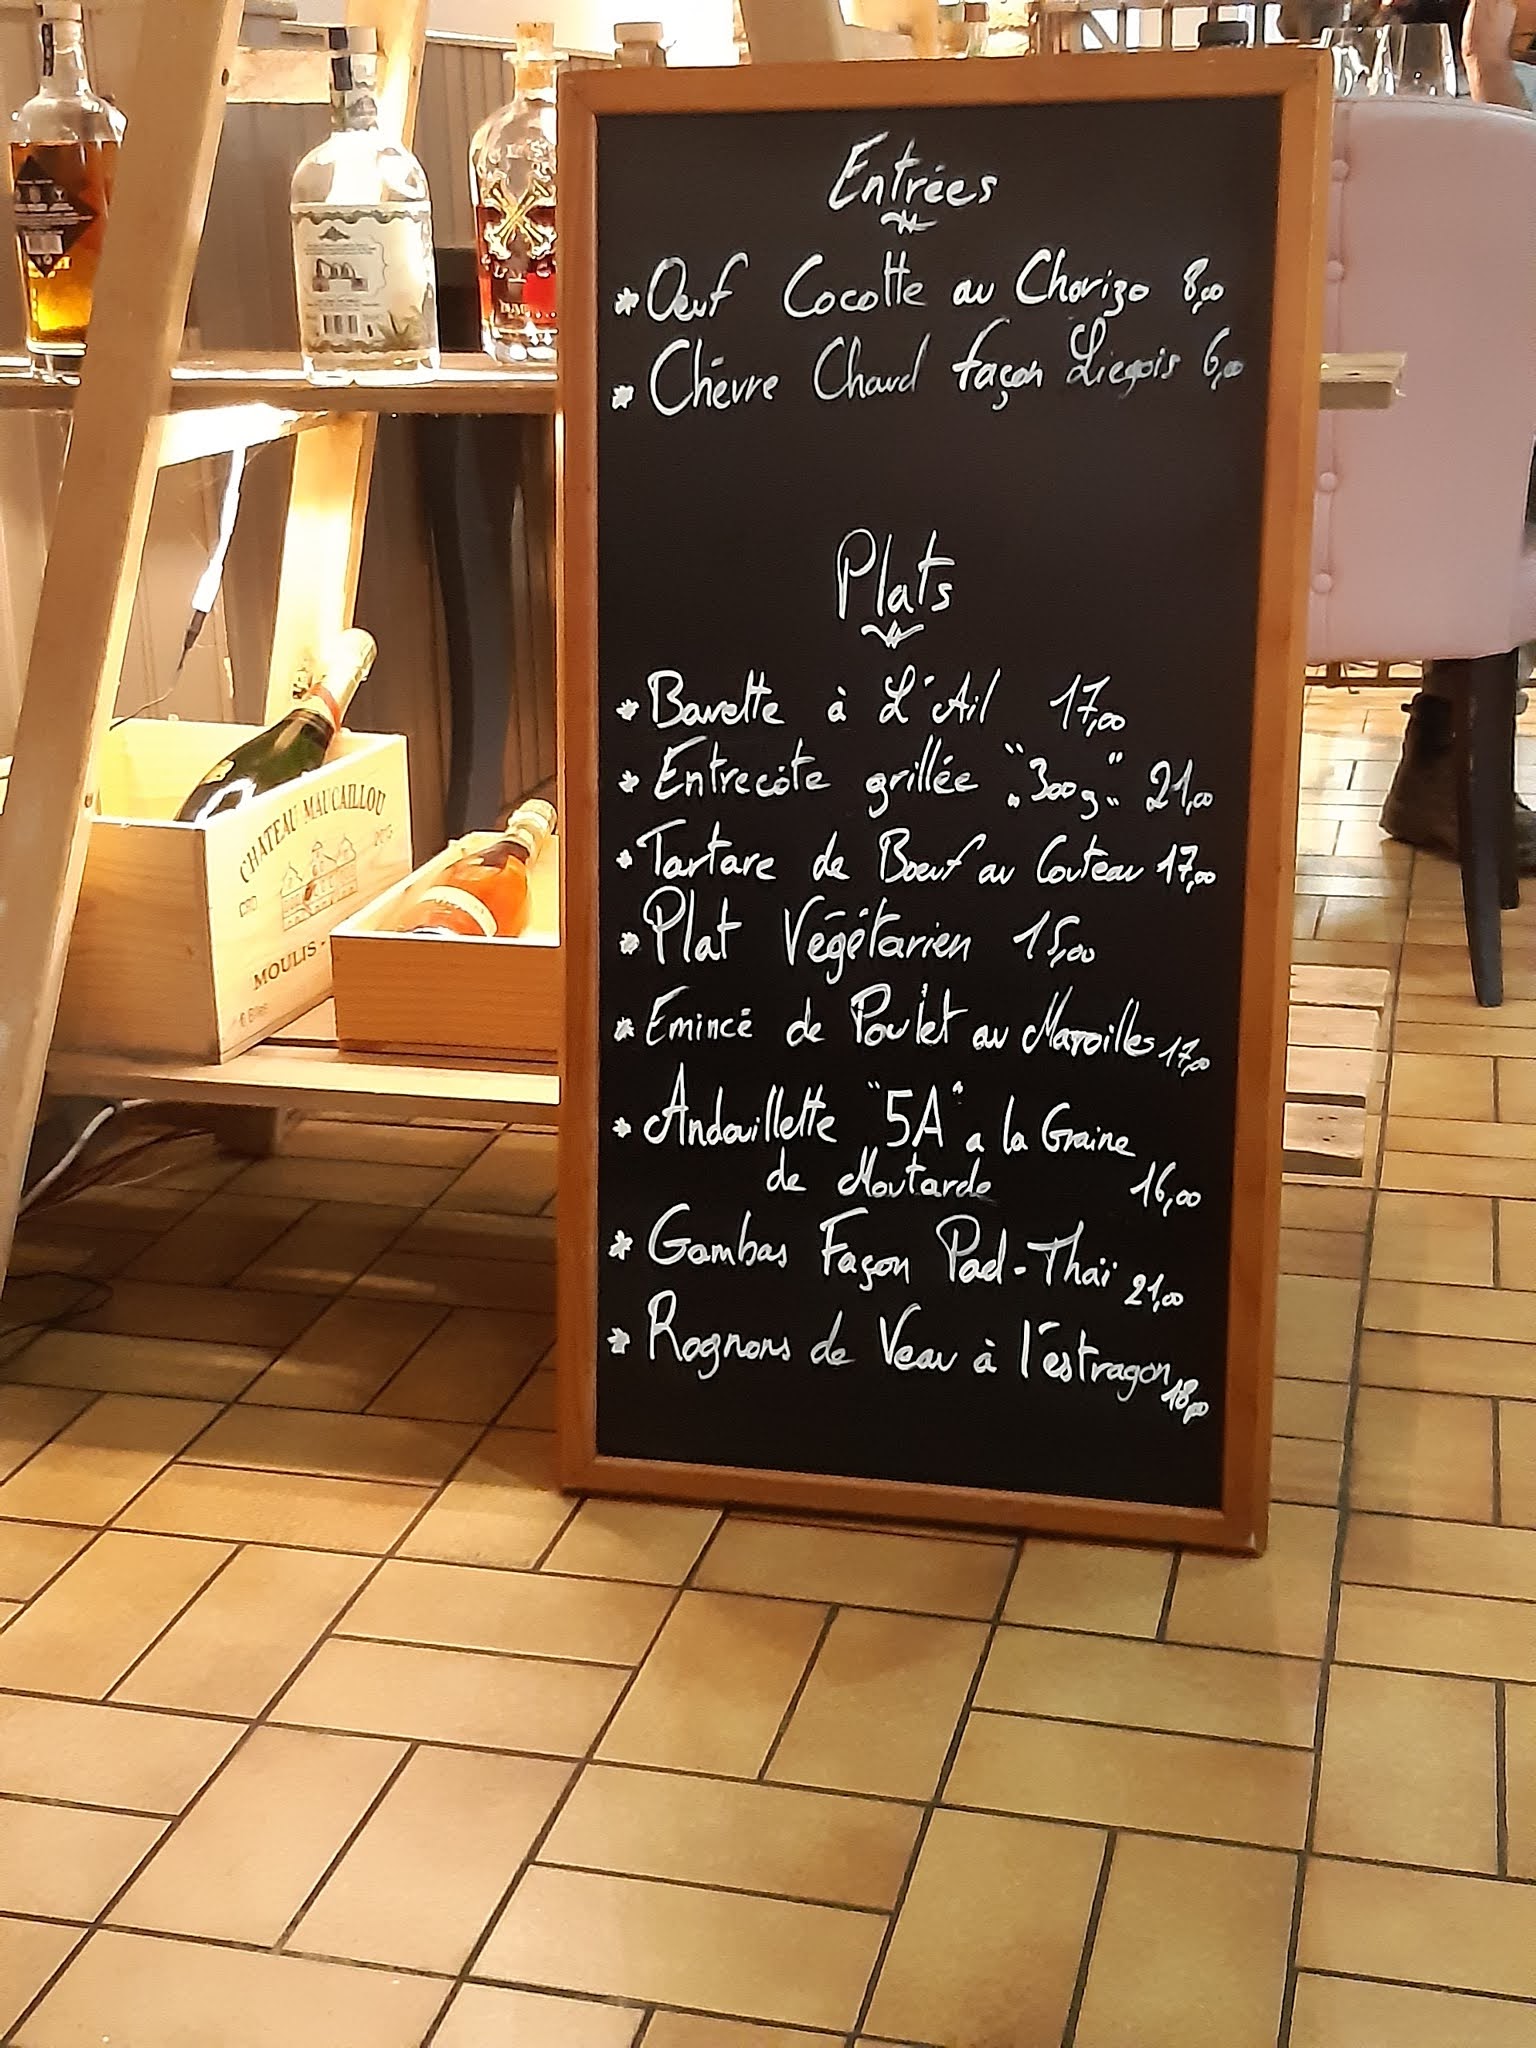 Entrées
* Oeuf Cocotte au Chorizo 8,00
* Chèvre Chaud façon Liegois 6,00
Plats
* Bavette à L'Ail 17,00
* Entrecôte grillée "300g" 21,00
* Tartare de Boeuf au Couteau 17,00
* Plat Végétarien 15,00
* Emincé de Poulet au Maroilles 17,00
* Andouillette "5A" a la Graine
de Moutarde 16,00
* Gambas Façon Pad-Thaï 21,00
* Rognons de Veau à l'éstragon 18,00
CHATEAU MAUCAILLOU
2015
CRD
MOULIS-